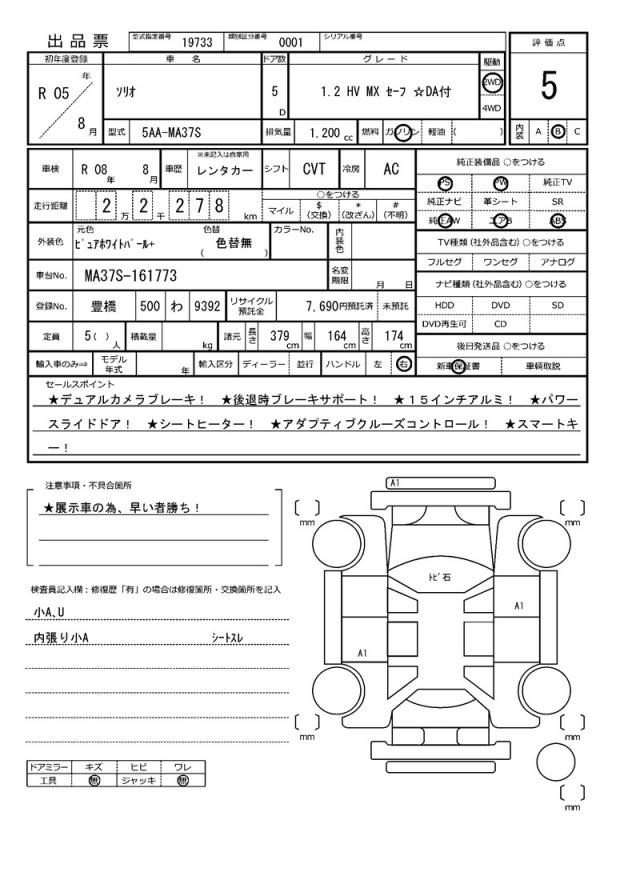 出品票 型式指定番号 19733 類別区分番号 0001 シリアル番号
評価点
5
初年度登録 車名 ドア数 グレード 駆動
R 05 年 8 月 ソリオ 5 D 1.2 HV MX セーフ ☆DA付 2WD
4WD
型式 5AA-MA37S 排気量 1.200 cc 燃料 ガソリン 軽油 ( ) 内装 A B C
車検 R 08 年 8 月 車歴 ※未記入は自家用 レンタカー シフト CVT 冷房 AC
走行距離 2 万 2 千 2 7 8 km ○をつける
マイル $ (交換) * (改ざん) # (不明)
外装色 元色 ピュアホワイトパール+ 色替 ( 色替無 ) カラーNo. 内装色
車台No. MA37S-161773 名変期限 月 日
登録No. 豊橋 500 わ 9392 リサイクル預託金 7,690円預託済 未預託
定員 5( ) 人 積載量 kg 諸元 長さ 379 cm 幅 164 cm 高さ 174 cm
輸入車のみ⇒ モデル年式 年 輸入区分 ディーラー 並行 ハンドル 左 右
純正装備品 ○をつける
PS PW 純正TV
純正ナビ 革シート SR
純正AW エアB ABS
TV種類 (社外品含む) ○をつける
フルセグ ワンセグ アナログ
ナビ種類 (社外品含む) ○をつける
HDD DVD SD
DVD再生可 CD
後日発送品 ○をつける
新車保証書 車輌取説
セールスポイント
★デュアルカメラブレーキ! ★後退時ブレーキサポート! ★15インチアルミ! ★パワー
スライドドア! ★シートヒーター! ★アダプティブクルーズコントロール! ★スマートキ
ー!
注意事項・不具合箇所
★展示車の為、早い者勝ち!
検査員記入欄:修復歴「有」の場合は修復箇所・交換箇所を記入
小A、U
内張り小A シートスレ
ドアミラー キズ ヒビ ワレ
工具 無 ジャッキ 無
A1
〔 〕 mm 〔 〕 mm
トビ石
A1
A1
〔 〕 mm 〔 〕 mm
〔 〕 mm